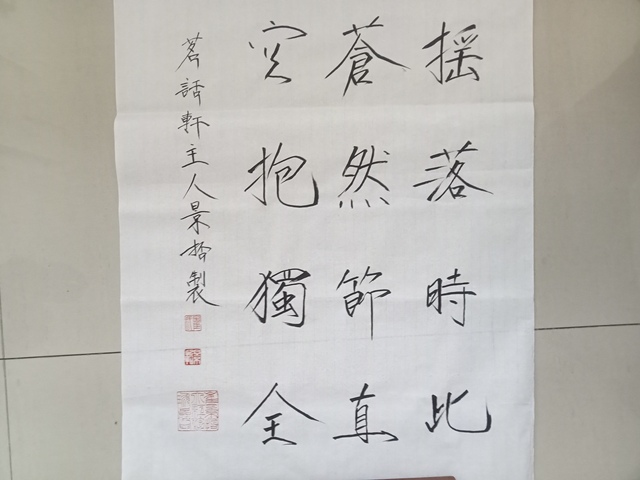 摇落時比
蒼然節真
空抱獨全
茗話軒主人景
製